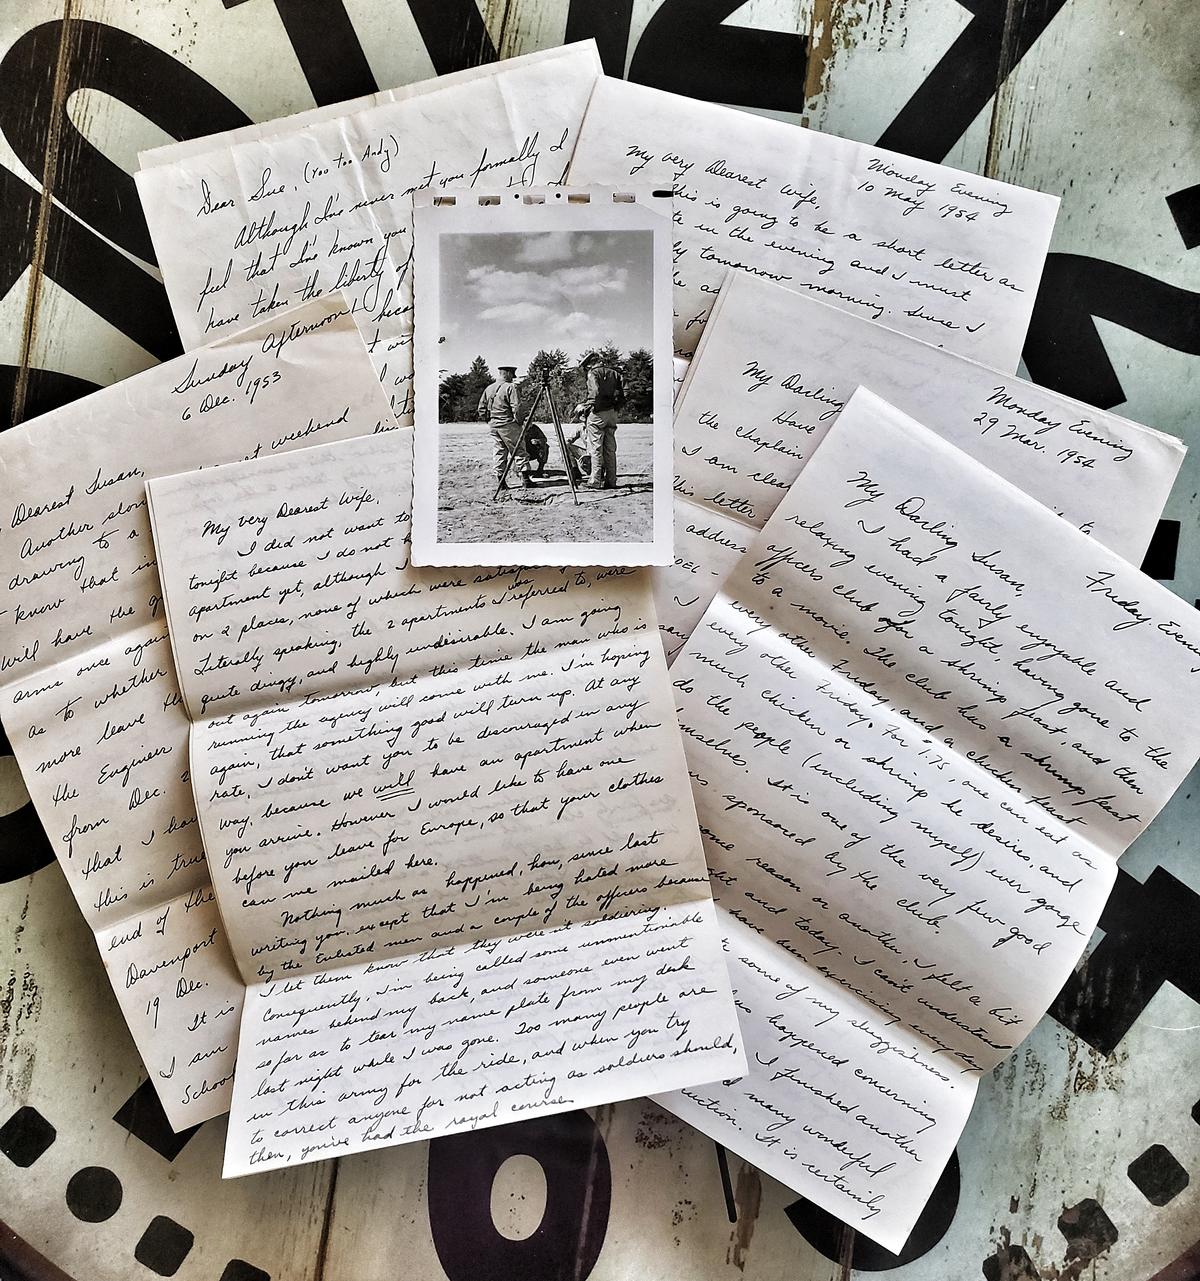 Dear Sue, (You Too Andy)
Although I've never met you formally I
feel that I've known you
have taken the liberty of
becau
Monday Evening
10 May 1954
My very Dearest Wife,
This is going to be a short letter as
in the evening and I must
tomorrow morning. Since I
Sunday Afternoon
6 Dec. 1953
Dearest Susan,
Another slow weekend
drawing to a
know that in
will have the
arms once again
as to whether
more leave
the Engineer
from Dec.
that I ha
this is true
end of the
Davenport
19 Dec.
It is
I am
School
Monday Evening
29 Mar. 1954
My Darling
Have
the chaplain
I am clea
this letter
address
My very Dearest Wife,
I did not want to
tonight because I do not h
apartment yet, although I
on 2 places, none of which were satisf
Literally speaking, the 2 apartments I referred to, were
quite dingy, and highly undesirable. I am going
out again tomorrow, but this time the man who is
running the agency will come with me. I'm hoping
again, that something good will turn up. At any
rate, I don't want you to be discouraged in any
way, because we will have an apartment when
you arrive. However I would like to have one
before you leave for Europe, so that your clothes
can me mailed here.
Nothing much as happened, hon, since last
writing you, except that I'm being hated more
by the Enlisted men and a couple of the officers because
I let them know that they were in soldiering.
Consequently, I'm being called some unmentionable
names behind my back, and someone even went
so far as to tear my name plate from my desk
last night while I was gone. Too many people are
in this army for the ride, and when you try
to correct anyone for not acting as soldiers should,
then, you've had the royal course
Friday Even
My Darling Susan,
I had a fairly enjoyable and
relaxing evening tonight, having gone to the
officers club for a shrimp feast, and then
to a movie. The club has a shrimp feast
every other Friday, and a chicken feast
every other Friday. For 1.75, one can eat as
much chicken or shrimp he desires, and
do the people (including myself) ever gorge
mselves. It is one of the very few good
sponsored by the club.
some reason or another, I felt a bit
and today. I can't understand
have been exercising every day
some of my sluggishness.
has happened concerning
I finished another
many wonderful
uction. It is certainly